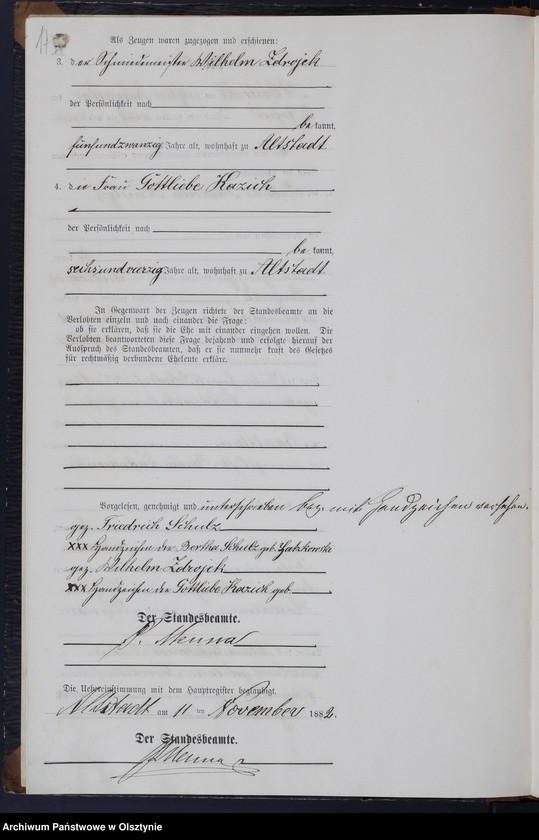 17
Als Zeugen waren zugezogen und erschienen:
3. der Schmiedemeister Wilhelm Zdrojek
der Persönlichkeit nach
bekannt,
fünfundzwanzig Jahre alt, wohnhaft zu Altstadt
4. die Frau Gottliebe Kozich
der Persönlichkeit nach
bekannt,
sechsundvierzig Jahre alt, wohnhaft zu Altstadt
In Gegenwart der Zeugen richtete der Standesbeamte an die
Verlobten einzeln und nach einander die Frage:
ob sie erklären, daß sie die Ehe mit einander eingehen wollen. Die
Verlobten beantworteten diese Frage bejahend und erfolgte hierauf der
Ausspruch des Standesbeamten, daß er sie nunmehr kraft des Gesetzes
für rechtmäßig verbundene Eheleute erkläre.
Vorgelesen, genehmigt und unterschrieben bez. mit Handzeichen versehen.
gez. Friedrich Schulz
xxx Handzeichen der Bertha Schulz geb.
gez. Wilhelm Zdrojek
xxx Handzeichen der Gottliebe Kozich geb.
Der Standesbeamte.
Menna
Die Uebereinstimmung mit dem Hauptregister beglaubigt.
Altstadt am 11 ten November 1882.
Der Standesbeamte.
Menna
Archiwum Państwowe w Olsztynie